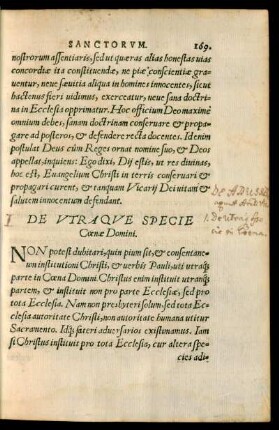 SANCTORVM. 169.
nostrorum assentiaris, sed ut quæras alias honestas uias
concordiæ ita constituendæ, ne piæ conscientiæ graa-
uentur, neue sæuitia aliqua in homines innocentes, sicut
hactenus fieri uidimus, exerceatur, neue sana doctri-
na in Ecclesia opprimatur. Hoc officium Deo maximè
omnium debes, sanam doctrinam conseruare & propa-
gare ad posteros, & defendere recta docentes. Id enim
postulat Deus cùm Reges ornat nomine suo, & Deos
appellat, inquiens: Ego dixi, Dij estis, ut res diuinas,
hoc est, Euangelium Christi in terris conseruari &
propagari curent, & tanquam Vicarij Dei uitam &
salutem innocentum defendant.
DE VTRAQVE SPECIE
Cœnæ Domini.
NON potest dubitari, quin pium sit, & consentane-
um institutioni Christi, & uerbis Pauli, uti utraq;
parte in Cœna Domini. Christus enim instituit utranq;
partem, & instituit non pro parte Ecclesiæ, sed pro
tota Ecclesia. Nam non presbyteri solùm, sed tota Ec-
clesia autoritate Christi, non autoritate humana utitur
Sacramento. Idq; fateri aduersarios existimamus. Iam
si Christus instituit pro tota Ecclesia, cur altera spe-
cies adi-